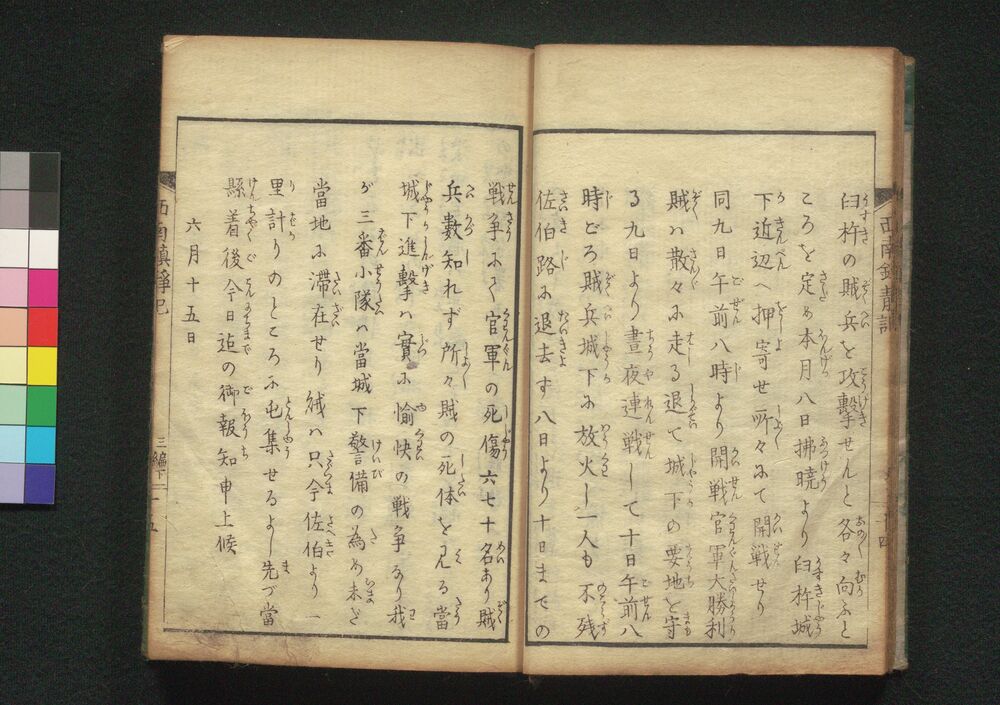 臼杵の賊兵を攻撃せんと各々向ふと
ころを定め本月八日拂暁より臼杵城
下近辺へ押寄せ所々にて開戦せり
同九日午前八時より開戦官軍大勝利
賊ハ散々に走る退て城下の要地を守
る九日より晝夜連戦して十日午前八
時ごろ賊兵城下に放火し一人も不残
佐伯路に退去す八日より十日までの
戦争にて官軍の死傷六七十名あり賊
兵數知れず所々賊の死体を見る當
城下進撃ハ實に愉快の戦争なり我
が三番小隊ハ當城下警備の為め未だ
當地に滞在せり賊ハ只今佐伯より一
里計りのところに屯集せるよし先づ當
縣着後今日迄の御報知申上候
六月十五日
西南鎮静記
三編下
十五